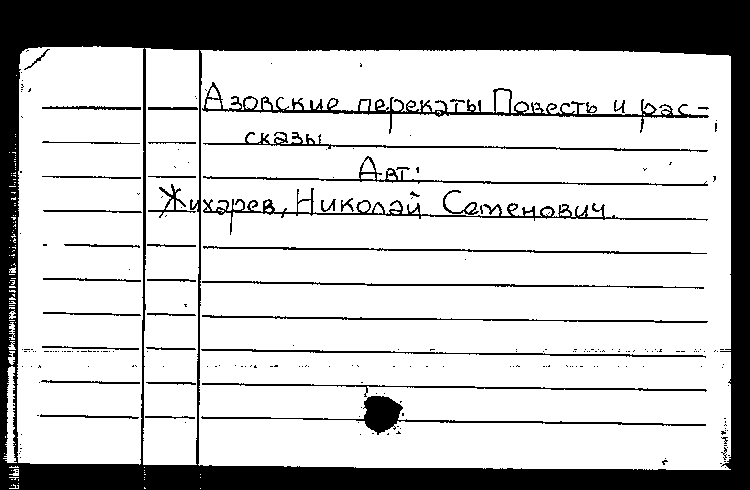 Азовские перекаты Повесть и рас-
сказы.
Авт:
Жихарев, Николай Семенович.